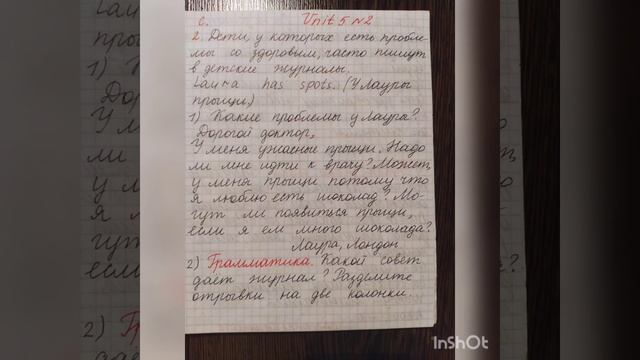 с. Unit 5 №2
2. Дети у которых есть пробле-
мы со здоровьем, часто пишут
в детские журналы.
Laura has spots. (У Лауры
прыщи.)
1) Какие проблемы у Лаура?
Дорогой доктор,
У меня ужасные прыщи. Надо
ли мне идти к врачу? Может
у меня прыщи потому что
я люблю есть шоколад? Мо-
гут ли появиться прыщи,
если я ем много шоколада?
Лаура, Лондон
2) Грамматика. Какой совет
даёт журнал? Разделите
отрывки на две колонки...
InShOt